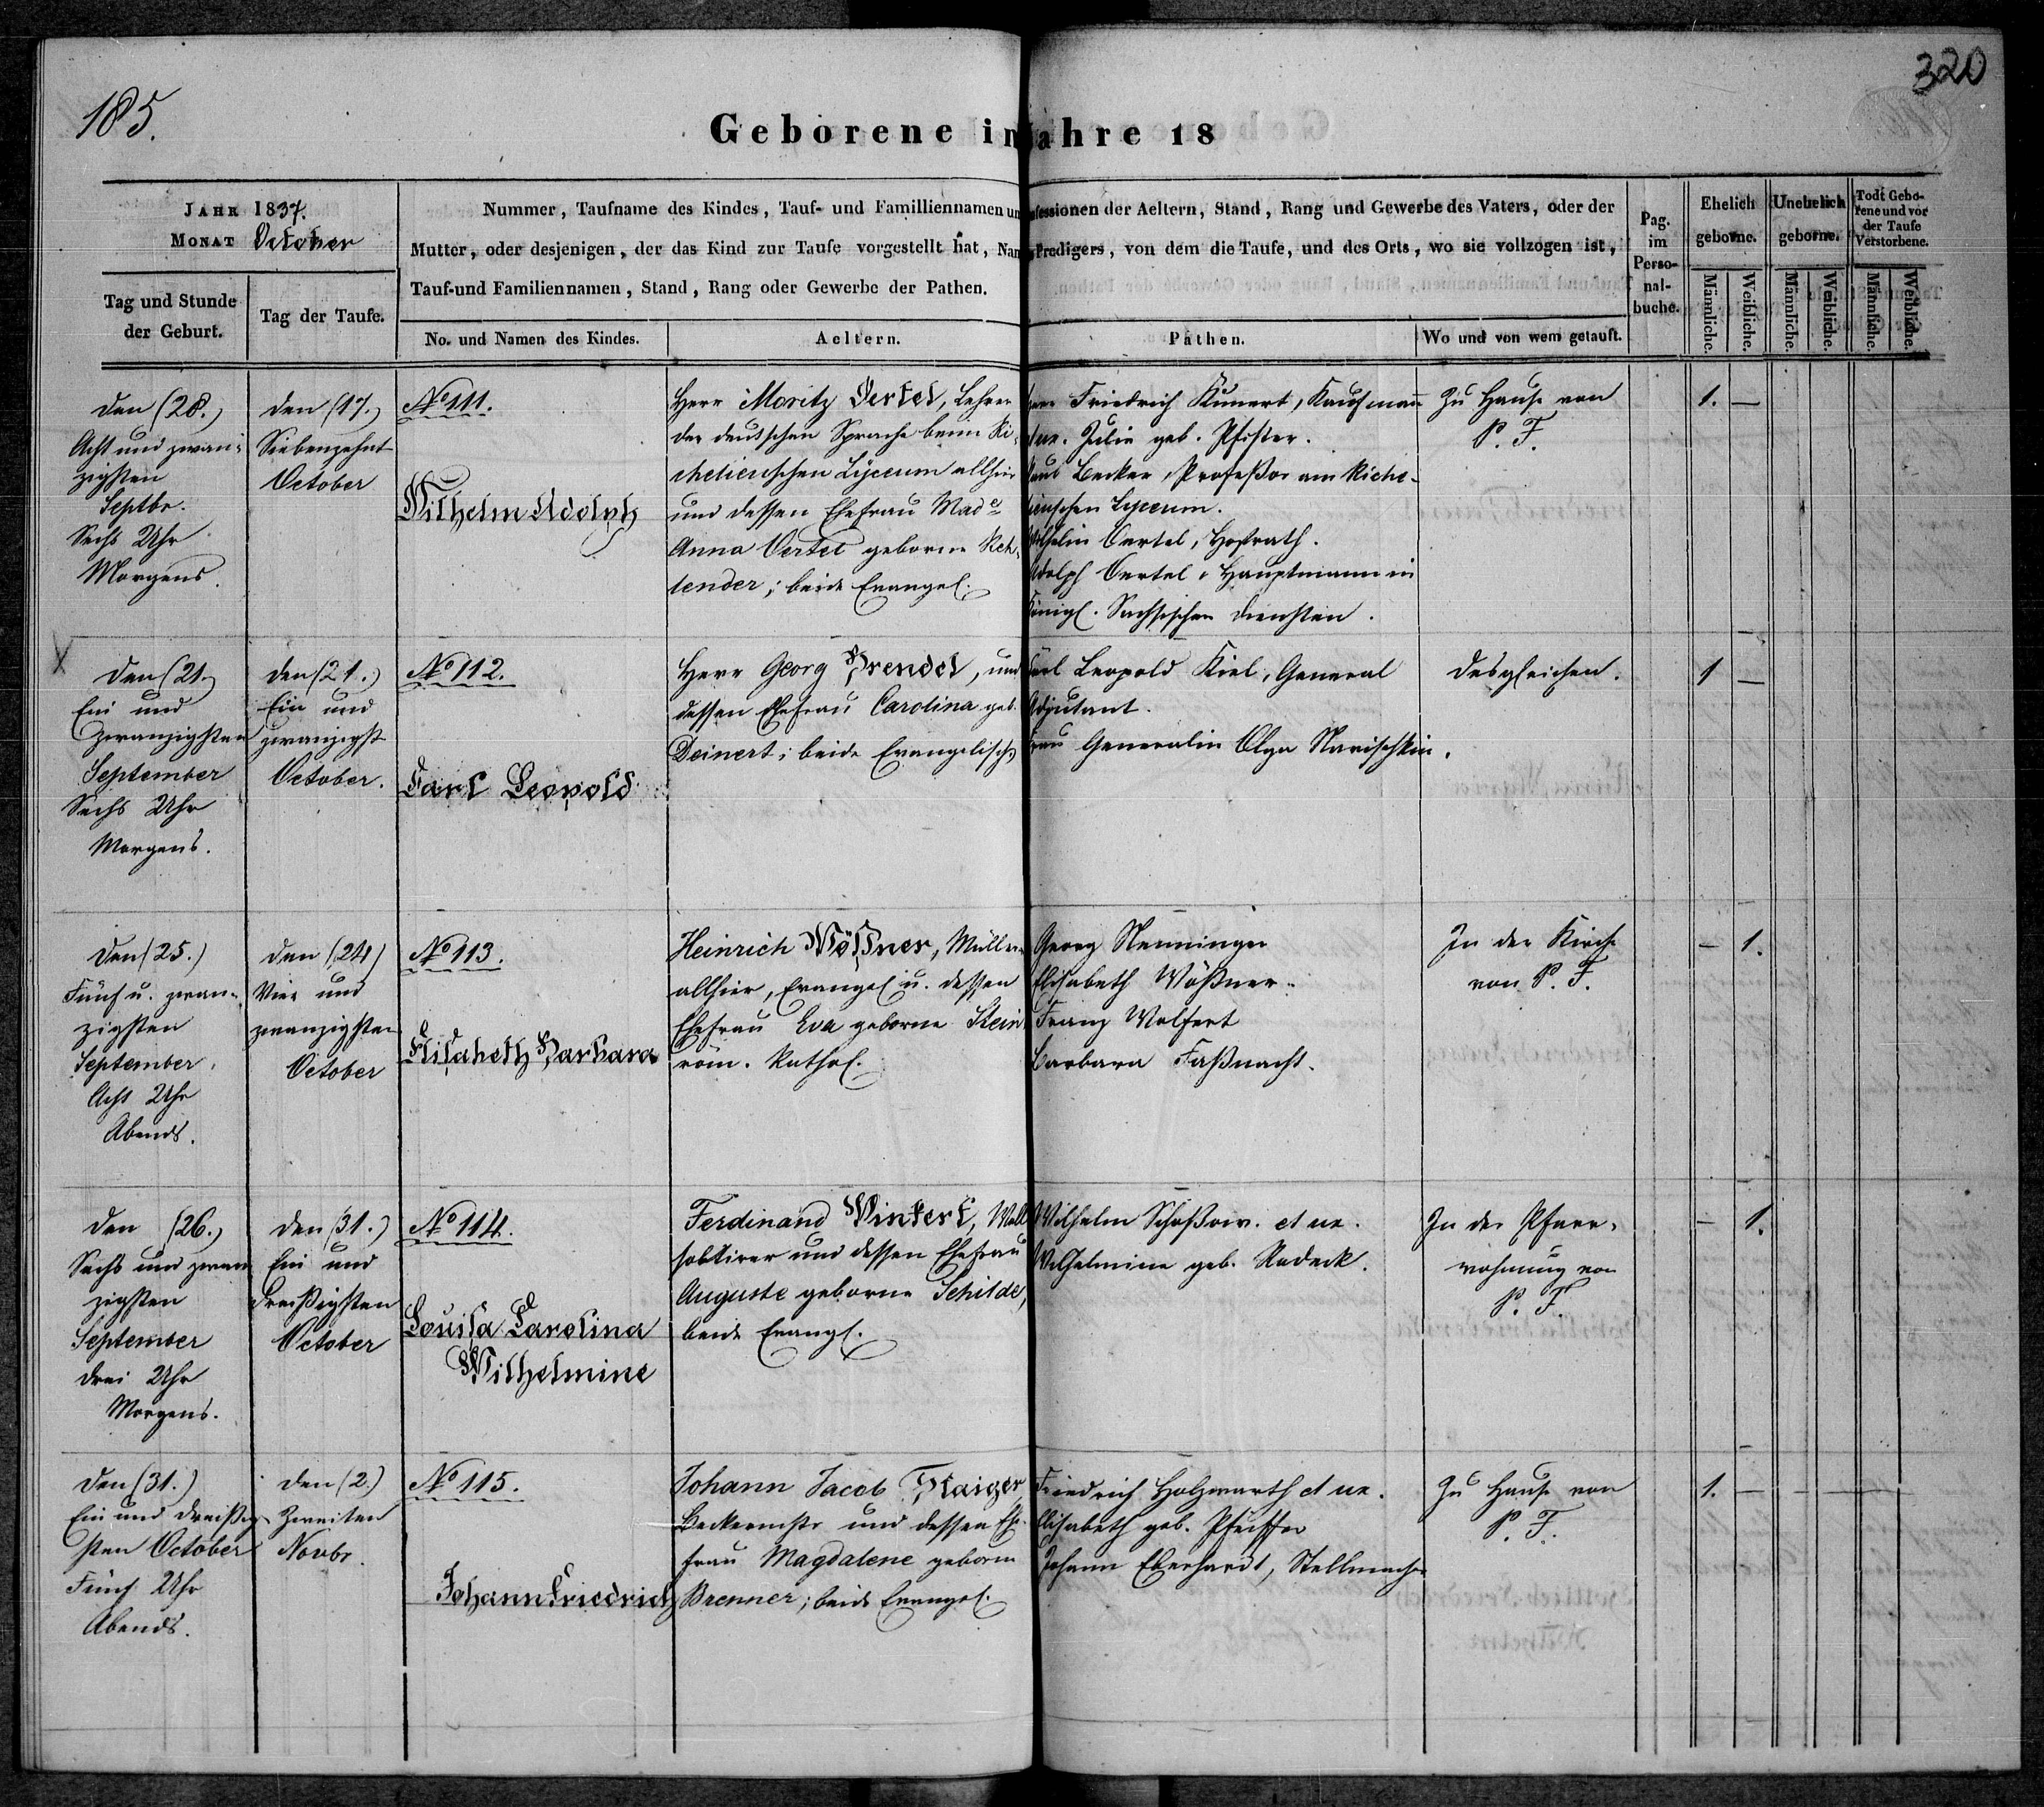 185.
320
Geborene im Jahre 18
JAHR 1837.
MONAT October
Nummer, Taufname des Kindes, Tauf- und Familliennamen un
fessionen der Aeltern, Stand, Rang und Gewerbe des Vaters, oder der
Mutter, oder desjenigen, der das Kind zur Taufe vorgestellt hat, Nam
Predigers, von dem die Taufe, und des Orts, wo sie vollzogen ist,
Tauf-und Familiennamen, Stand, Rang oder Gewerbe der Pathen.
Pag.
im
Perso-
nal-
buche.
Ehelich
geborne.
Unehelich
geborne.
Todt Gebo-
rene und vor
der Taufe
Verstorbene.
Tag und Stunde
der Geburt.
Tag der Taufe.
No. und Namen des Kindes.
Aeltern.
Pathen.
Wo und von wem getauft.
Männliche.
Weibliche.
Männliche.
Weibliche.
Männliche.
Weibliche.
Den (28.)
Acht und zwan-
zigsten
Septbr.
Sechs Uhr
Morgens.
den (17.)
Siebenzehnt
October
No 111.
Wilhelm Adolph
Herr Moritz Oertel, Lehrer
der deutschen Sprache beim Ri-
chelieuschen Lyceum allhier
und dessen Ehefrau Made
Anna Oertel geborne Reh-
lender; beide Evangel.
Herr Friedrich Kunert, Kaufmann
et ux. Julie geb. Pfister.
Paul Becker, Profeßor am Riche-
lieuschen Lyceum.
Wilhelm Oertel, Hofrath.
Adolph Oertel, Hauptmann in
Königl. Sachsischen Diensten.
Zu Hause von
P. F.
1. —
Den (21.)
Ein und
zwanzigsten
September
Sechs Uhr
Morgens.
den (21.)
Ein und
zwanzigst
October.
No 112.
Carl Leopold
Herr Georg Prendel, und
dessen Ehefrau Carolina geb.
Deinert; beide Evangelisch.
Carl Leopold Kiel, General
Adjutant.
Frau Generalin Olga Narischkin.
desgleichen.
1 —
Den (25.)
Fünf u. zwan-
zigsten
September,
Acht Uhr
Abends.
den (24)
Vier und
zwanzigsten
October
No 113.
Elisabeth Barbara
Heinrich Wößner, Müller
allhier, Evangel. u. dessen
Ehefrau Eva geborne Stein
röm. Kathol.
Georg Nenninger
Elisabeth Wößner
Franz Wolfert
Barbara Faßnacht.
In der Kirche
von P. F.
— 1.
Den (26.)
Sechs und zwan
zigsten
September
drei Uhr
Morgens.
den (31.)
Ein und
dreißigsten
October
No 114.
Louisa Carolina
Wilhelmine
Ferdinand Winkert, Woll
sortirer und dessen Ehefrau
Auguste geborne Schilde,
beide Evangl.
Wilhelm Schoßow. et ux.
Wilhelmine geb. Radeck.
In der Pfarr-
wohnung von
P. F.
— 1.
Den (31.)
Ein und dreißig-
sten October
Fünf Uhr
Abends.
den (2.)
Zweiten
Novbr.
No 115.
Johann Friedrich
Johann Jacob Staiger
Beckermstr und dessen Ehe-
frau Magdalene geborne
Brenner; beide Evangel.
Friedrich Holzwarth et ux.
Elisabeth geb. Pfeiffer
Johann Eberhardt, Stellmacher
Zu Hause von
P. F.
1. —